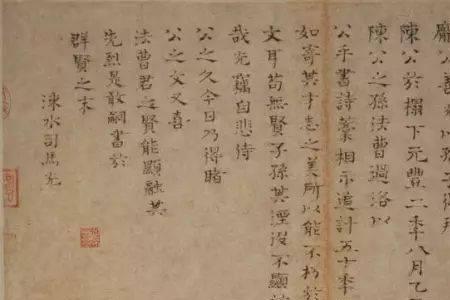 龐公善
陳公於榻下元豐二年八月乙
陳公之孫法曹過洛以
公手書詩藁相示追計五十年
如寄其才志之美所以能不朽於
文耳苟無賢子孫其湮沒不顯
哉光竊自悲侍
公之久今日乃得睹
公之文又喜
法曹君之賢能顯融其
先烈是敢嗣書於
群賢之末
涑水司馬光